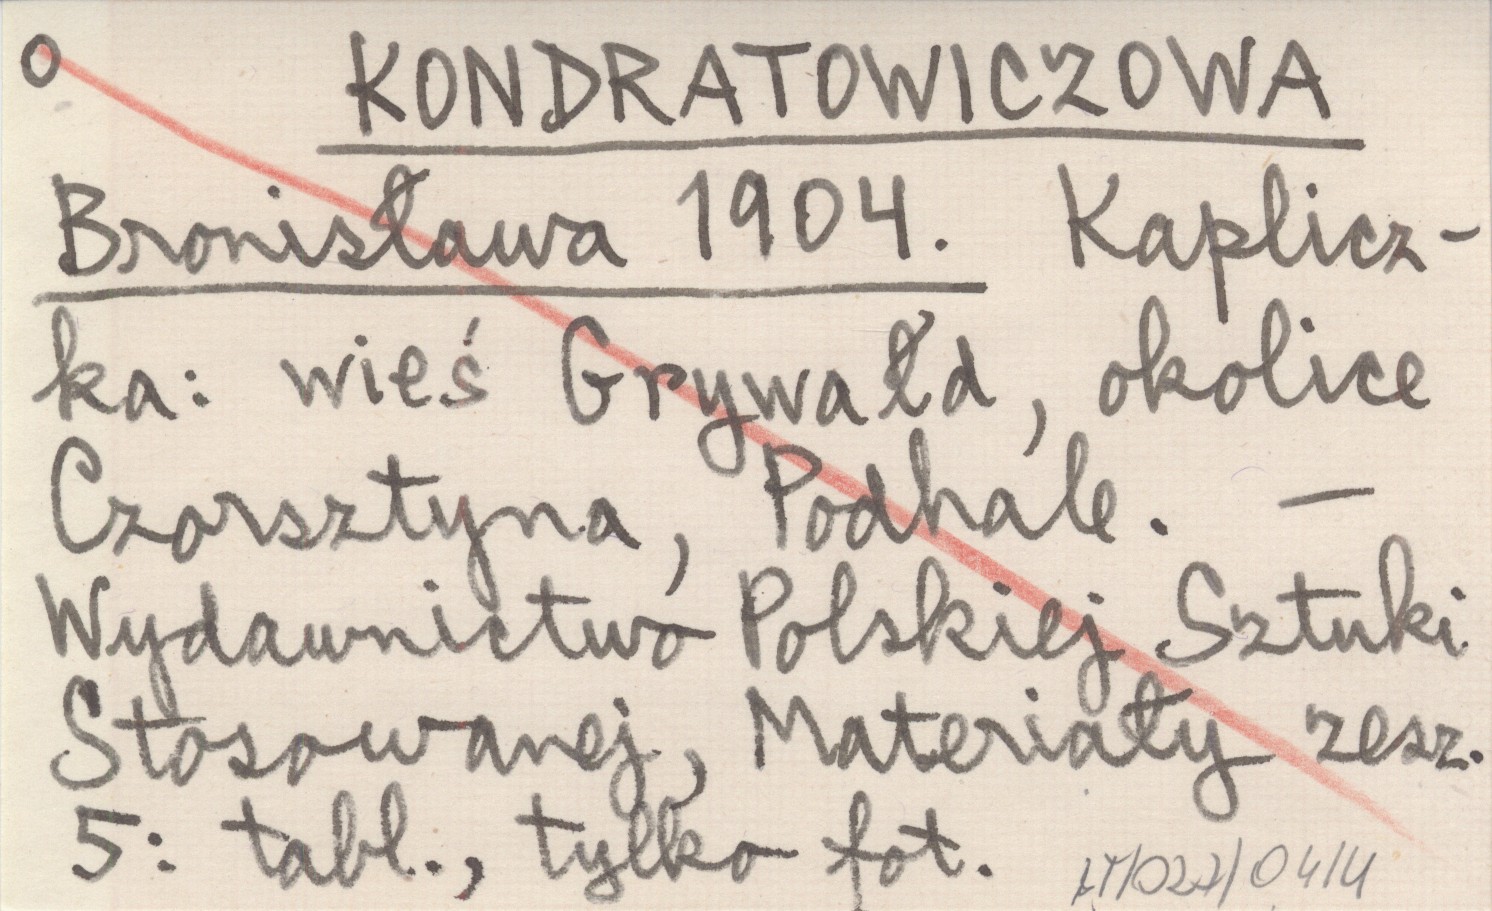 O KONDRATOWICZOWA
Bronisława 1904. Kaplicz-
ka: wieś Grywałd, okolice
Czorsztyna, Podhale. —
Wydawnictwo Polskiej Sztuki
Stosowanej, Materiały zesz.
5: tabl., tylko fot.